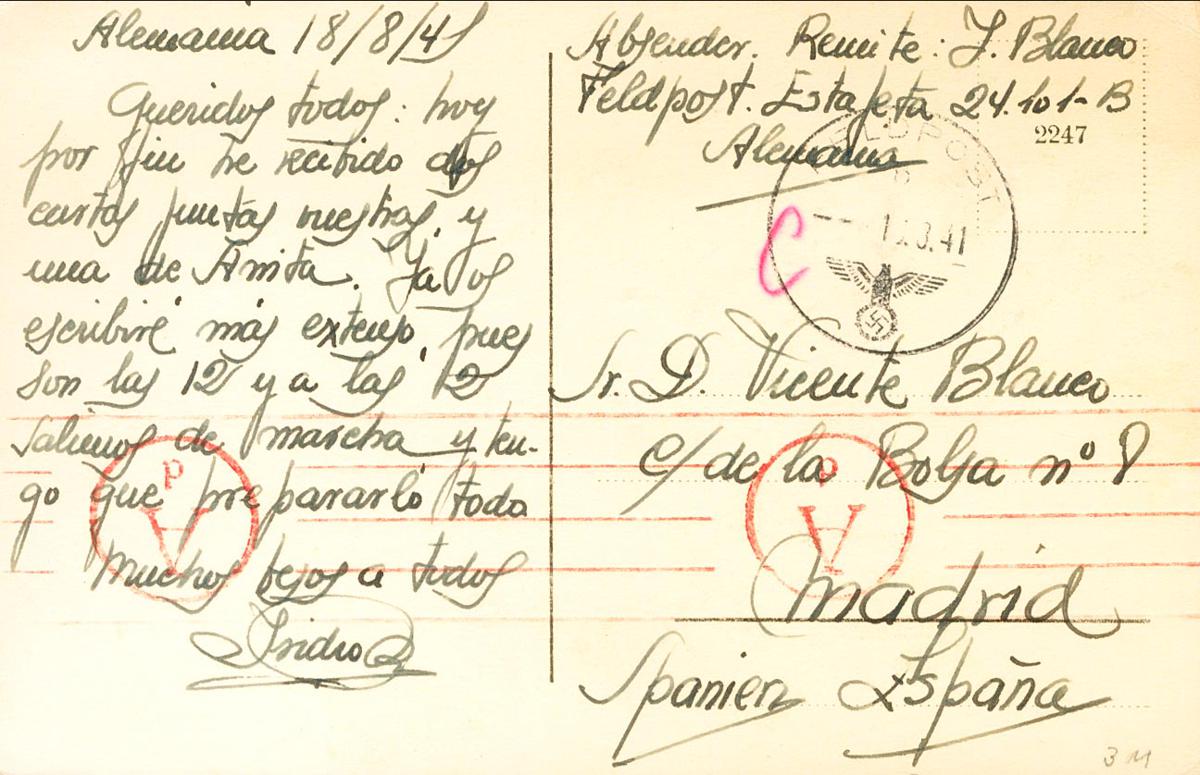 Alemania 18/8/41
Queridos todos: hoy
por fin he recibido dos
cartas juntas vuestras, y
una de Anita. Ya os
escribiré más extenso, pues
son las 12 y a las 2
salimos de marcha y ten-
go que prepararlo todo
Muchos besos a todos
Isidro B
Absender. Remite: I. Blanco
Feldpost. Estafeta 24.101-B
Alemania
2247
FELDPOST
b
41
C
Sr. D. Vicente Blanco
c/ de la Bolsa nº 8
Madrid
Spanien España
p
V
p
V
3M